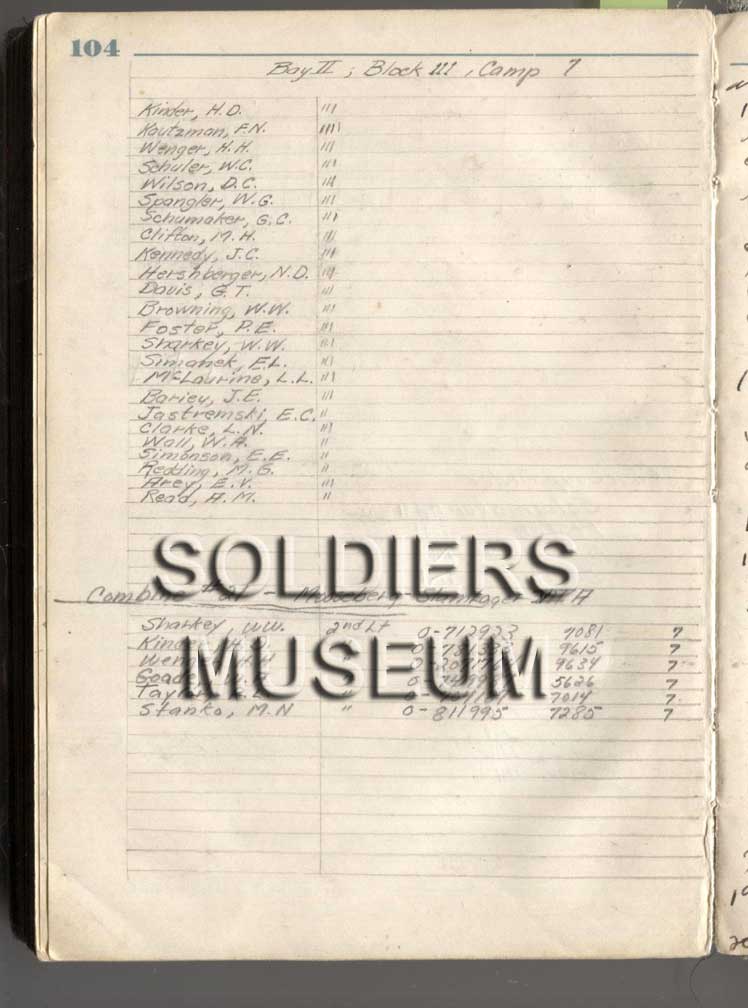 104
Bay II ; Block III , Camp 7
Kinder, H.D. III
Kautzman, F.N. IIII
Wenger, H.H. III
Schuler, W.C. III
Wilson, D.C. III
Spangler, W.G. III
Schumaker, G.C. III
Clifton, M.H. III
Kennedy, J.C. III
Hershberger, N.D. III
Davis, G.T. III
Browning, W.W. III
Foster, P.E. III
Sharkey, W.W. III
Simanek, E.L. III
McLaurine, L.L. III
Bariey, J.E. III
Jastremski, E.C. II
Clarke, L.N. III
Wall, W.A. II
Simonson, E.E. II
Redding, M.G. II
Arey, E.V. III
Read, A.M. II
SOLDIERS
Combine # - Mooseberg Stammlager A
Sharkey, W.W. 2nd Lt O-712923 7081 7
9615 7
MUSEUM
9634 7
5626 7
7014 7
Stanko, M.N " O-811995 7285 7